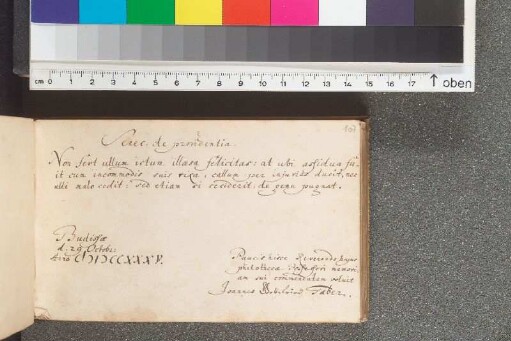 cm 0 1 2 3 4 5 6 7 8 9 10 11 12 13 14 15 16 17 ↑ oben
Senec. de providentia.
Non fert ullum ictum illaesa felicitas: at ubi assidua fu-
it cum incommodis suis rixa, callum per injurias ducit, nec
ulli malo cedit; sed etiam si ceciderit, de genu pugnat.
Budissae
d. 25 Octobr.
MDCCXXXV.
Paucis hisce Reverendo hujus
philothecae possessori memori-
am sui commendatam voluit
Joannes Faber.